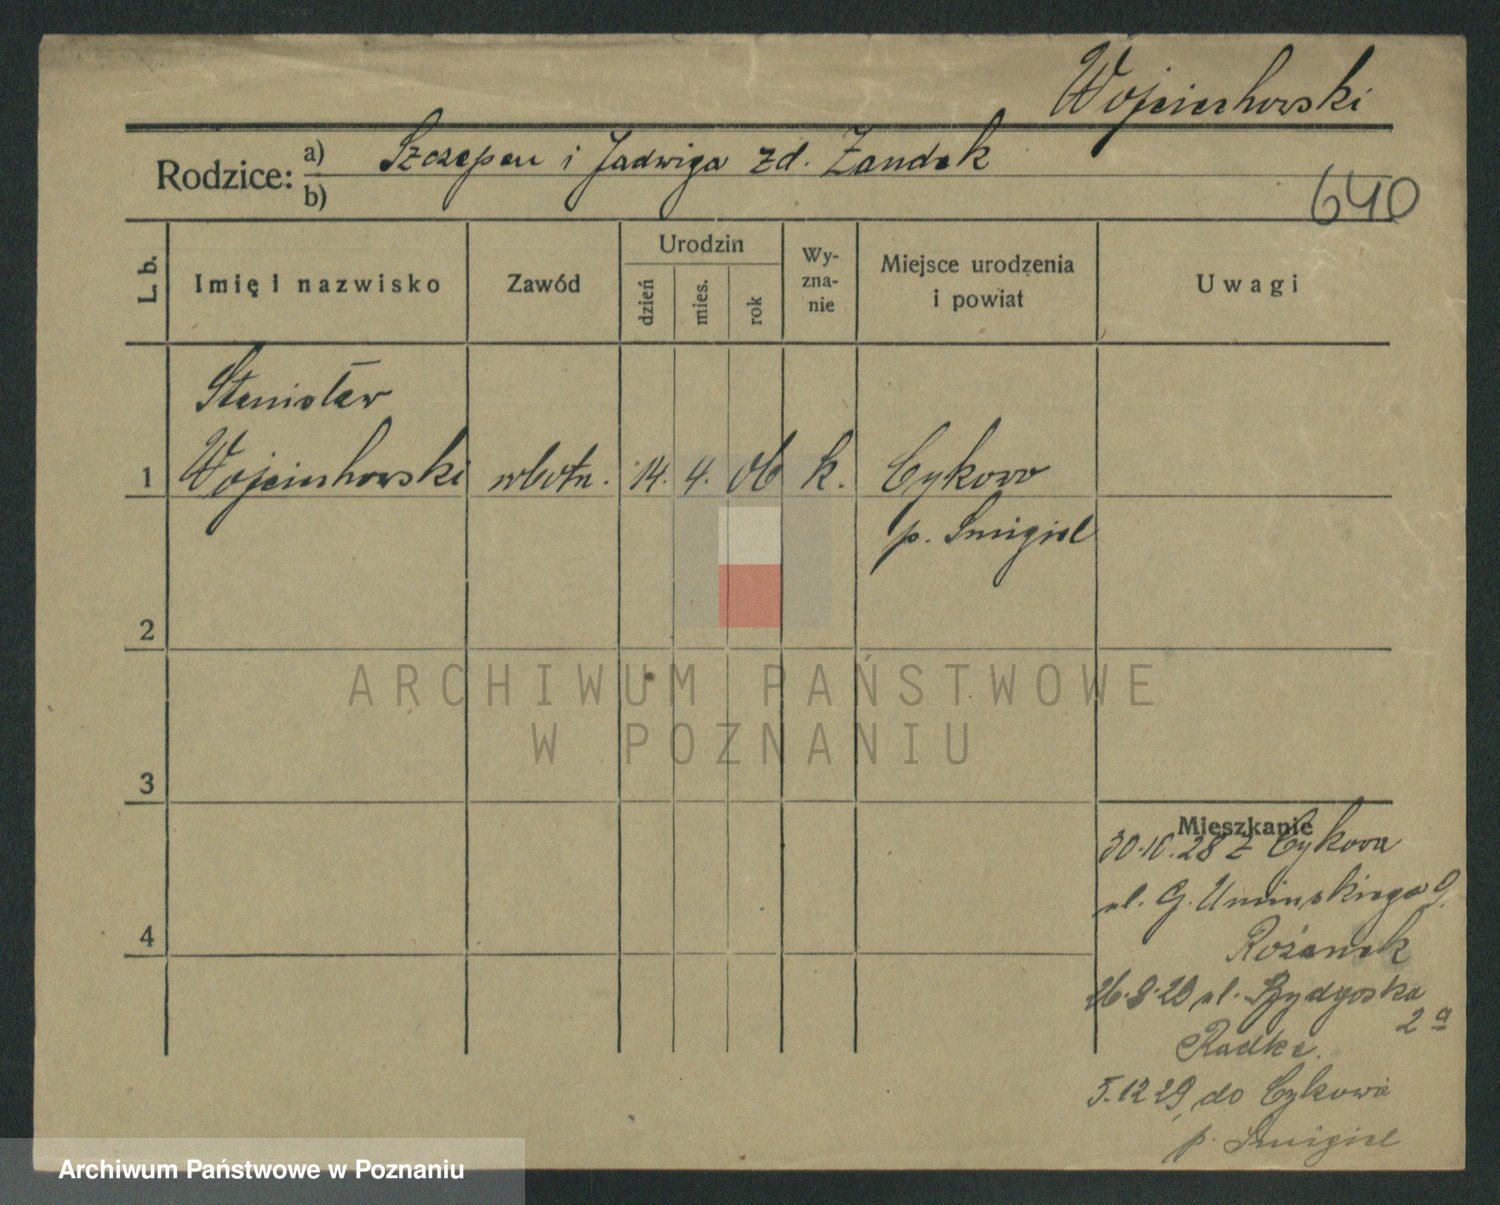 Wojciechowski
Rodzice: a) Szczepan i Jadwiga zd. Żandek
b)
640
L. b.
Imię i nazwisko
Zawód
Urodzin
dzień
mies.
rok
Wy-
zna-
nie
Miejsce urodzenia
i powiat
Uwagi
Stanisław
1 Wojciechowski robotn. 14. 4. 06 k. Cykowo
p. Śmigiel
2
3
4
Mieszkanie
30.10.28 z Cykowa
ul. G. Umińskiego 9.
Rożanek
26.8.29 ul. Bydgoska
2a
Radke.
5.12 29, do Cykowa
p. Śmigiel
ARCHIWUM PAŃSTWOWE
W POZNANIU
Archiwum Państwowe w Poznaniu